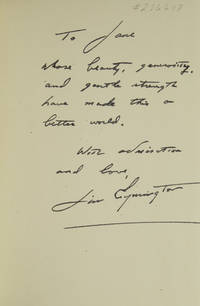 To Jane
whose beauty, generosity,
and gentle strength
have made this a
better world.
With admiration
and love,
Jim Symington